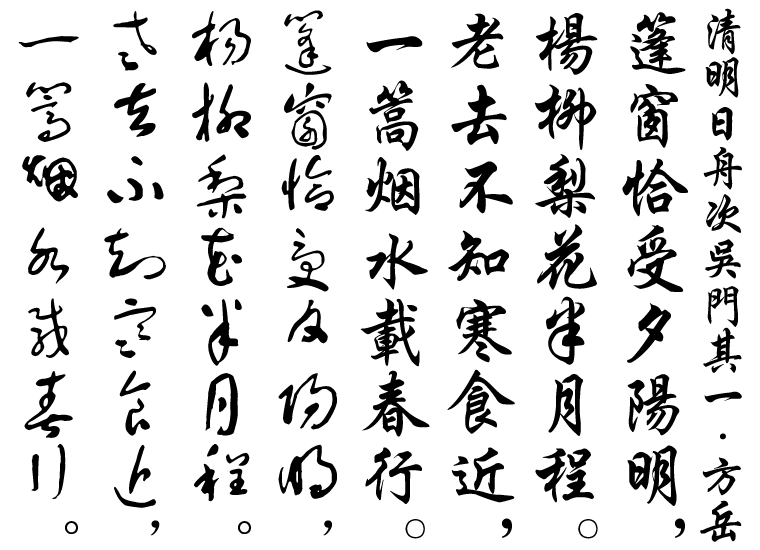 清明日舟次吳門其一·方岳
蓬窗恰受夕陽明，
楊柳梨花半月程。
老去不知寒食近，
一篙烟水載春行。
篷窗恰受夕陽明，
楊柳梨花半月程。
老去不知寒食近，
一篙烟水載春行。